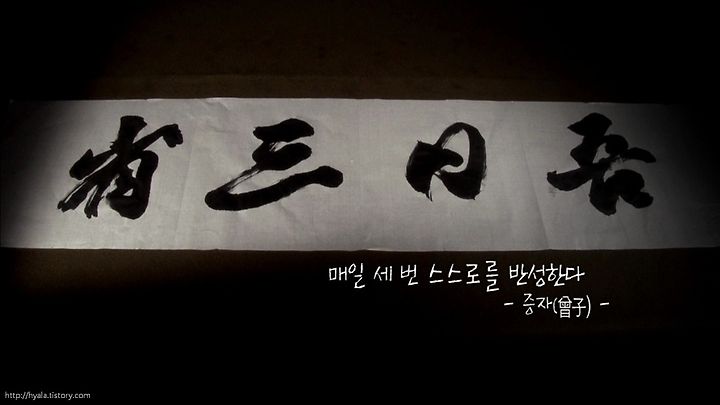 吾日三省
매일 세 번 스스로를 반성한다
- 증자(曾子) -
http://hyala.tistory.com